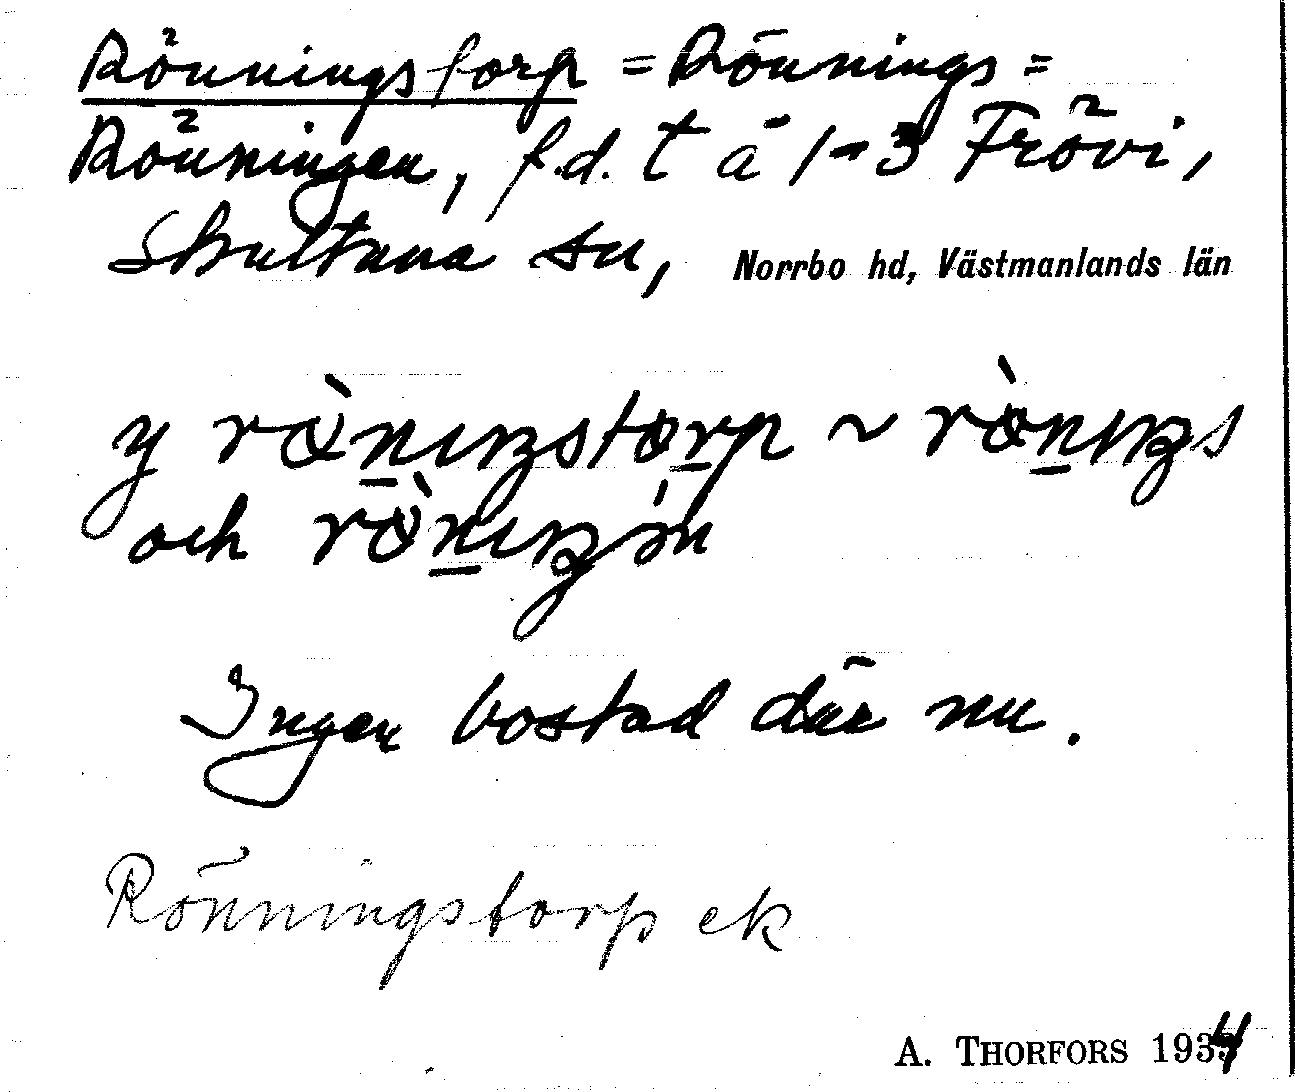 Rönningstorp = Rönnings =
Rönningen, f.d. t å 1-3 Frövi,
Skultuna sn, Norrbo hd, Västmanlands län
och
Ingen bostad där nu.
Rönningstorp ek
A. THORFORS 1934